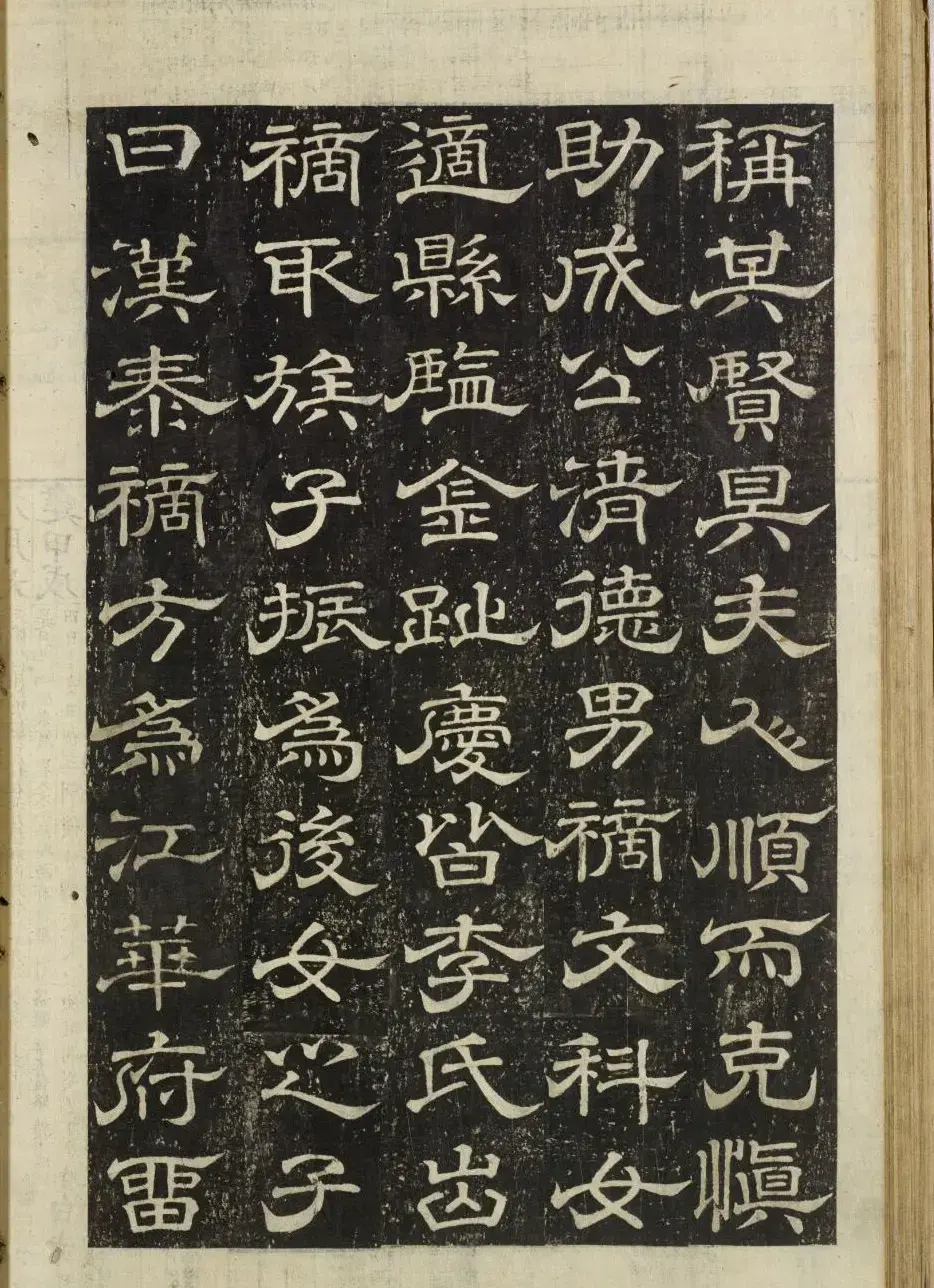 稱其賢具夫人順而克愼
助成公清德男禘文科女
適縣監金趾慶皆李氏出
禘取族子振爲後女之子
曰漢泰禘方爲江華府留